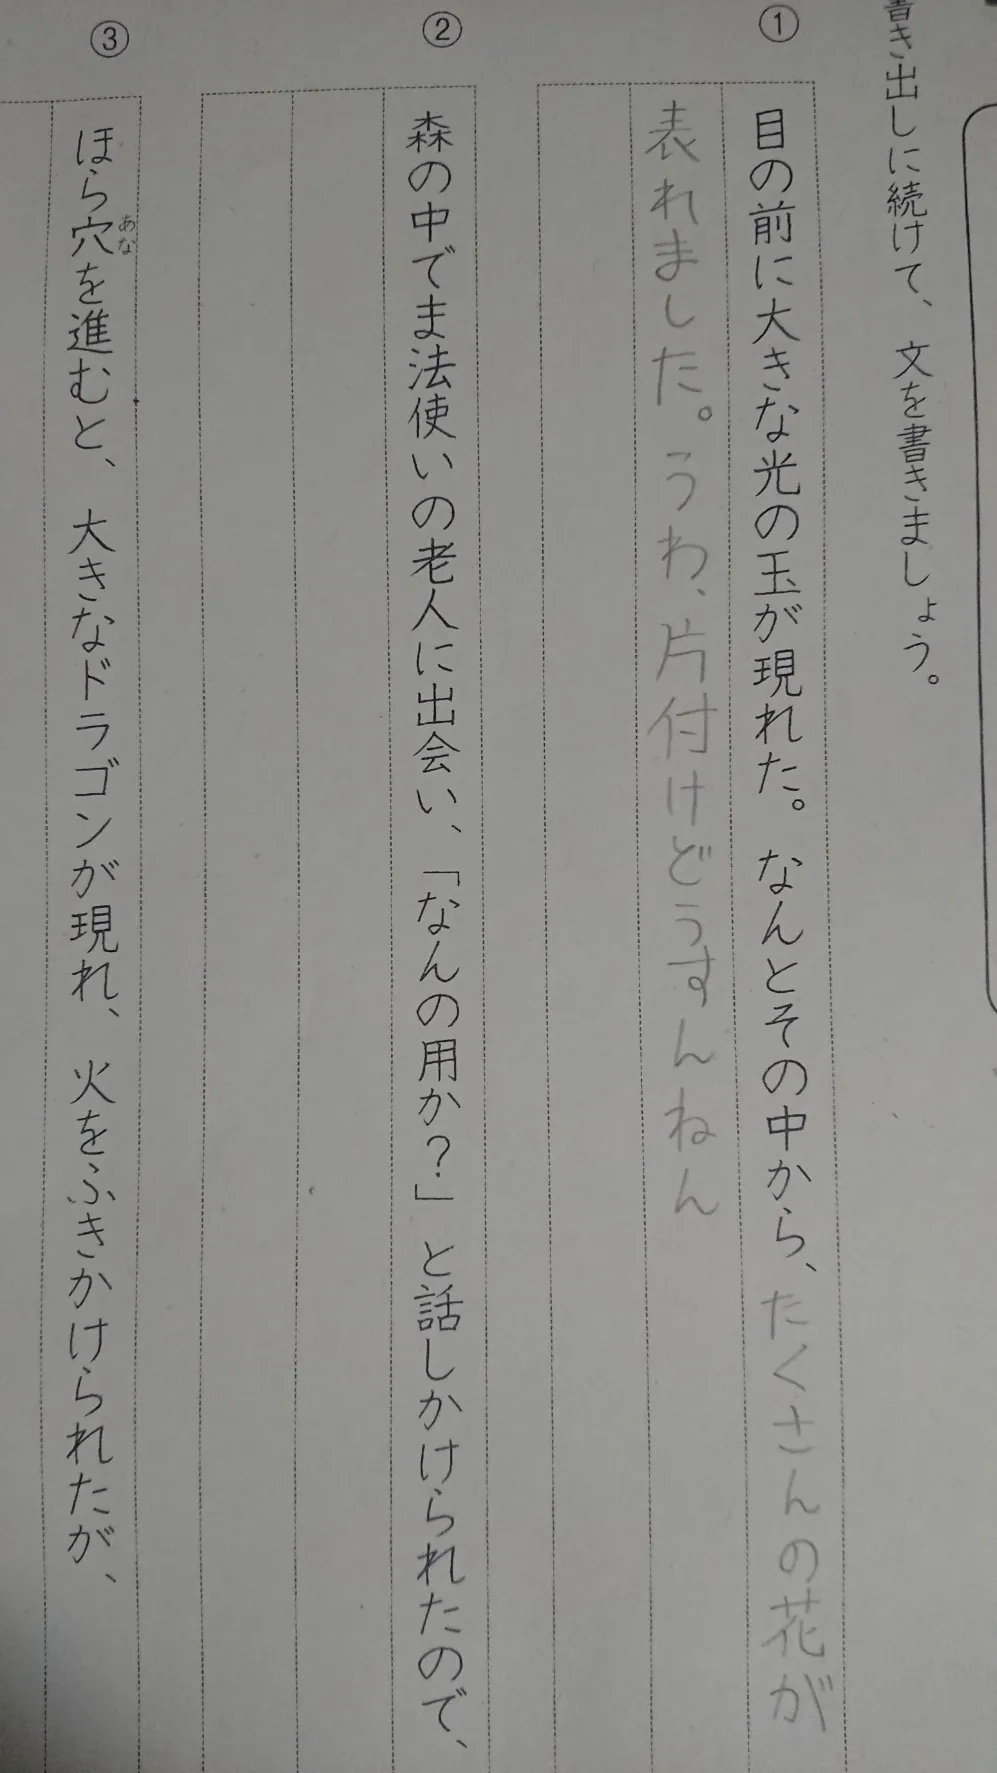 書き出しに続けて、文を書きましょう。
①
目の前に大きな光の玉が現れた。なんとその中から、たくさんの花が
表れました。うわ、片付けどうすんねん
②
森の中でま法使いの老人に出会い、「なんの用か？」と話しかけられたので、
③
ほら穴を進むと、大きなドラゴンが現れ、火をふきかけられたが、
あな